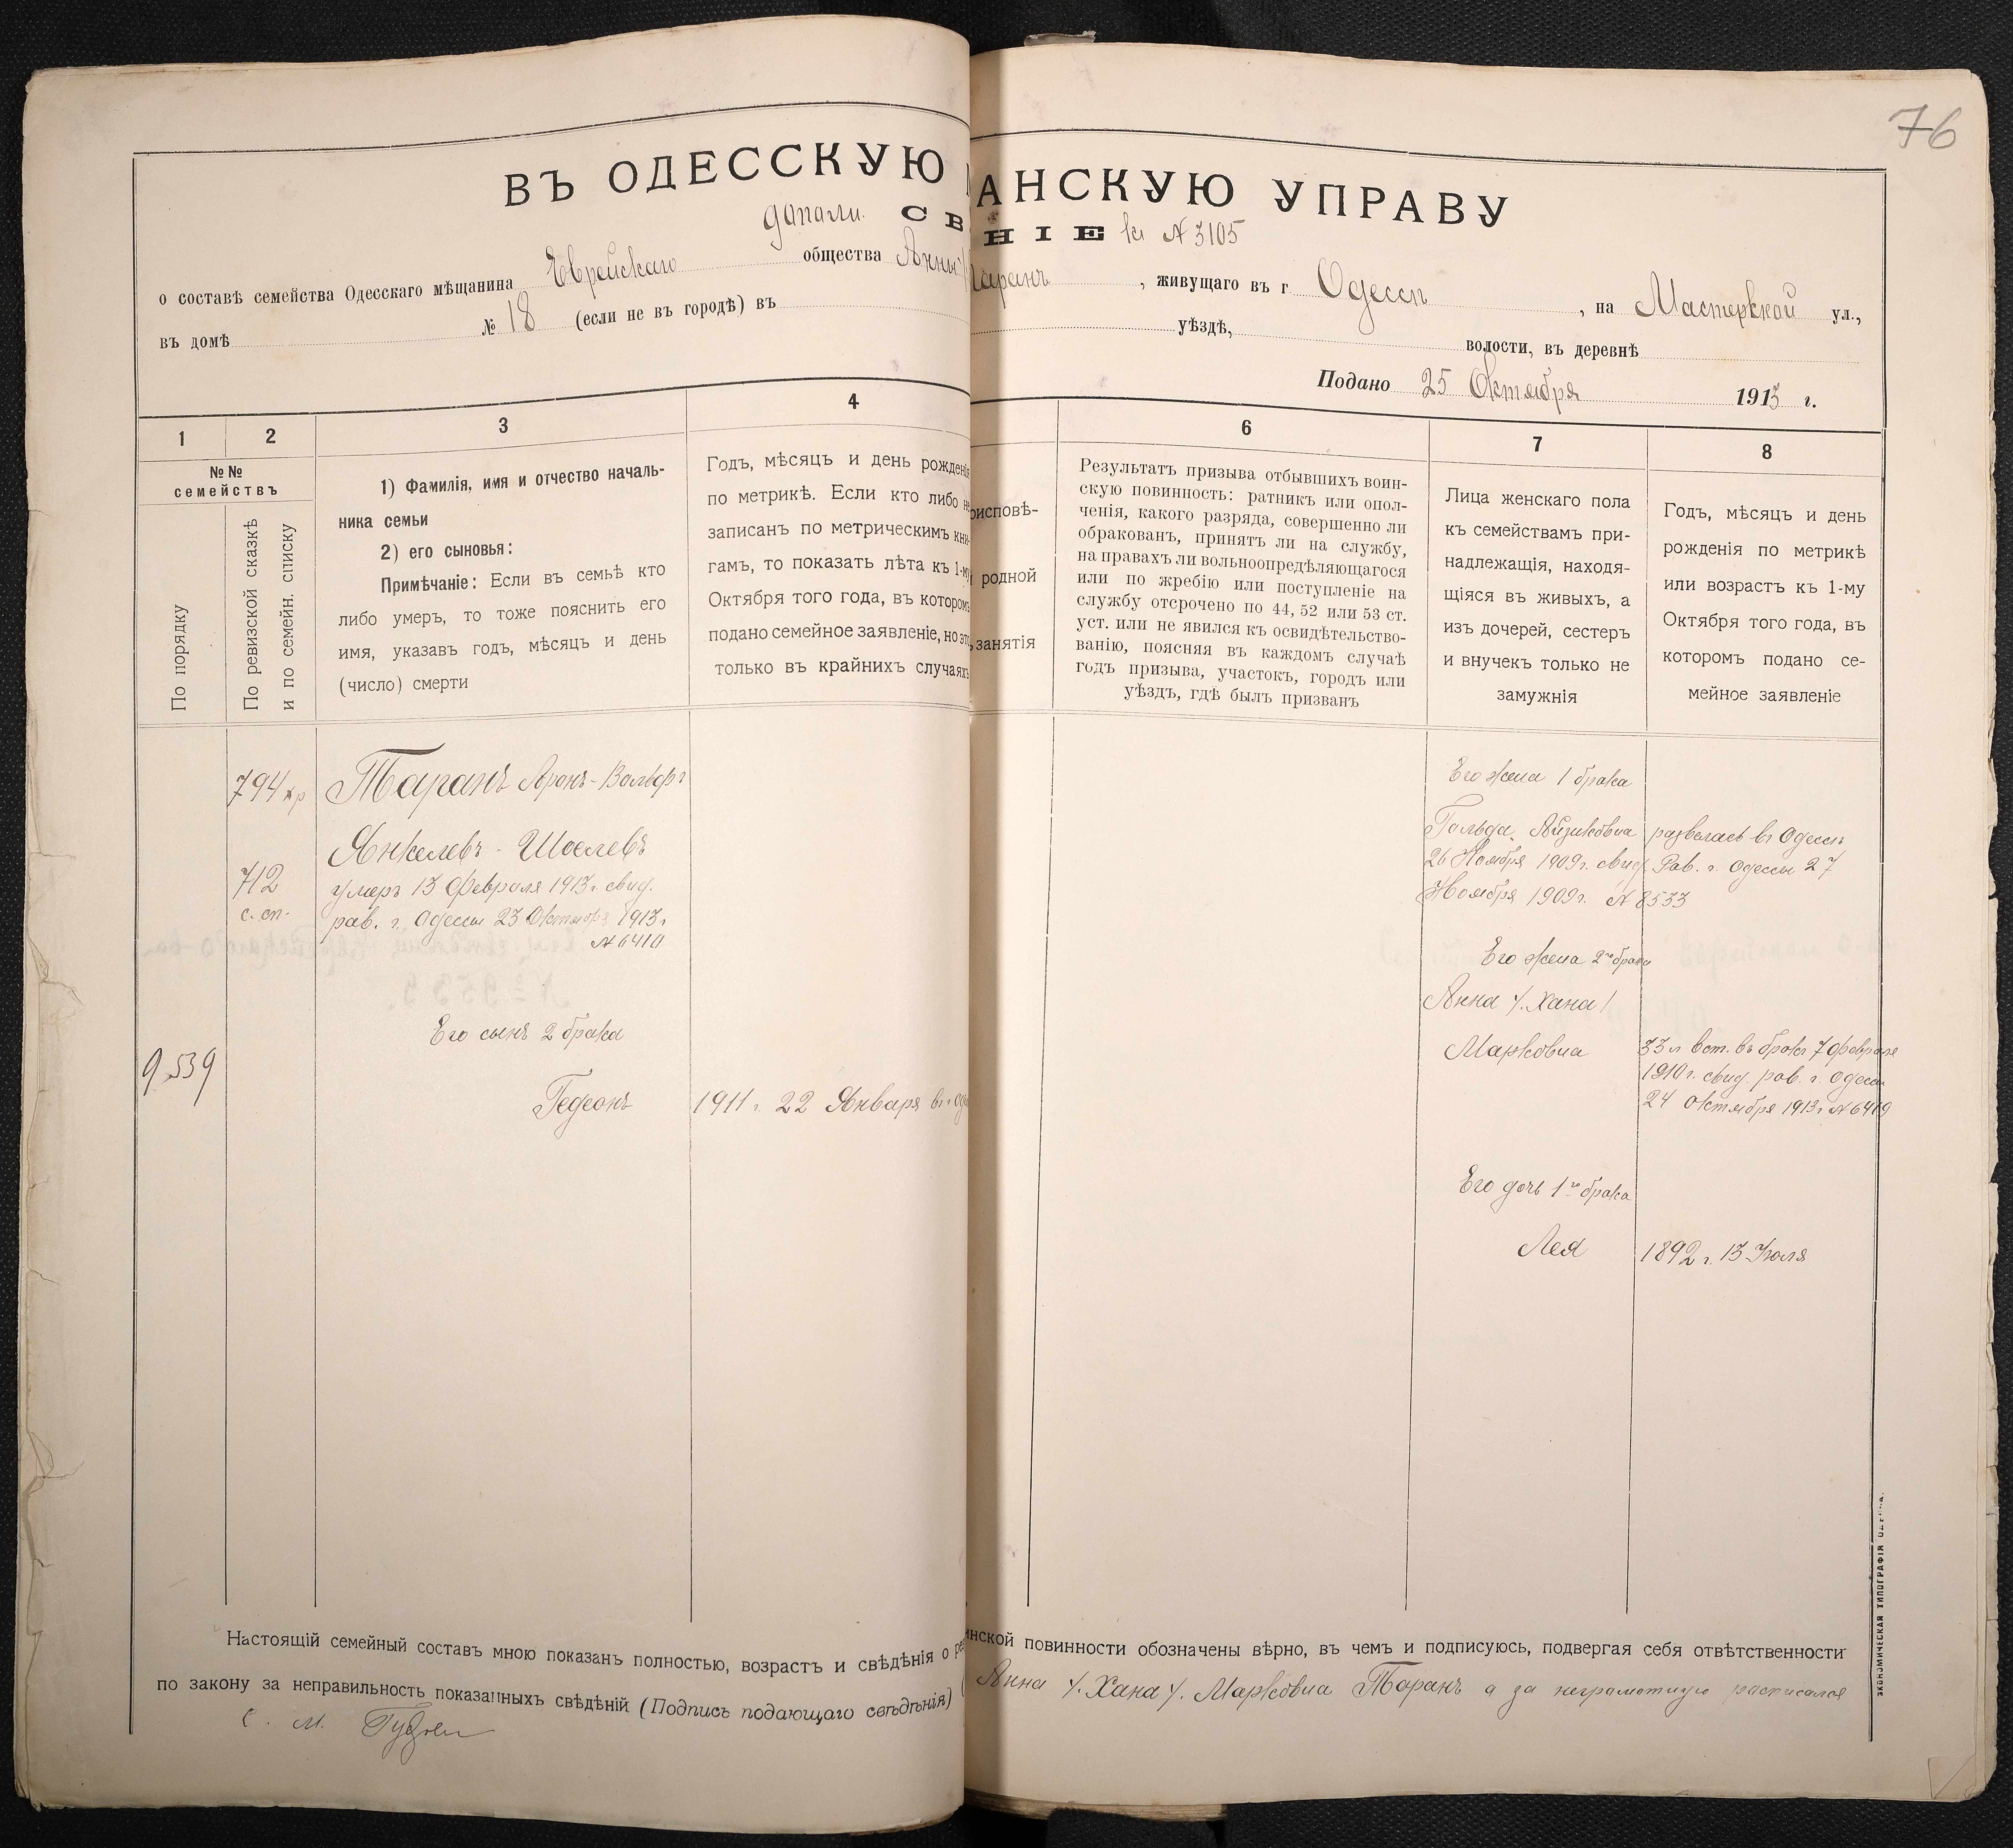 76
ВЪ ОДЕССКУЮ АНСКУЮ УПРАВУ
СВ НІЕ № 3105
о составѣ семейства Одесскаго мѣщанина Еврейскаго общества Анны Таранъ, живущаго въ г Одессѣ, на Мастерской ул.,
въ домѣ № 18 (если не въ городѣ) въ уѣздѣ, волости, въ деревнѣ
Подано 25 Октября 1913 г.
1
2
3
4
6
7
8
№№
семействъ
По порядку
По ревизской сказкѣ
и по семейн. списку
1) Фамилія, имя и отчество началь-
ника семьи
2) его сыновья:
Примѣчаніе: Если въ семьѣ кто
либо умеръ, то тоже пояснить его
имя, указавъ годъ, мѣсяцъ и день
(число) смерти
Годъ, мѣсяцъ и день рожденія
по метрикѣ. Если кто либо не
записанъ по метрическимъ кни-
гамъ, то показать лѣта къ 1-му
Октября того года, въ которомъ
подано семейное заявленіе, но это
только въ крайнихъ случаяхъ
оисповѣ-
родной
занятія
Результатъ призыва отбывшихъ воин-
скую повинность: ратникъ или опол-
ченія, какого разряда, совершенно ли
обракованъ, принятъ ли на службу,
на правахъ ли вольноопредѣляющагося
или по жребію или поступленіе на
службу отсрочено по 44, 52 или 53 ст.
уст. или не явился къ освидѣтельство-
ванію, поясняя въ каждомъ случаѣ
годъ призыва, участокъ, городъ или
уѣздъ, гдѣ былъ призванъ
Лица женскаго пола
къ семействамъ при-
надлежащія, находя-
щіяся въ живыхъ, а
изъ дочерей, сестеръ
и внучекъ только не
замужнія
Годъ, мѣсяцъ и день
рожденія по метрикѣ
или возрастъ къ 1-му
Октября того года, въ
которомъ подано се-
мейное заявленіе
794 хр
Таранъ Аронъ-Вольфъ
Янкелевъ-Шоелевъ
712
с. сп.
умеръ 13 Февраля 1913 г. свид.
рав. г. Одессы 23 Октября 1913 г
№ 6410
Его сынъ 2 брака
9,539
Гедеонъ
1911 г. 22 Января въ г Оде
Его жена 1 брака
Гольда Айзиковна развелась въ Одессѣ
26 Ноября 1909 г. свид. Рав. г. Одессы 27
Ноября 1909 г. № 8533
Его жена 2го брака
Анна (Хана)
Марковна
33 л вст. въ бракъ 7 Февраля
1910 г. свид. рав. г. Одессы
24 Октября 1913 г № 6419
Его дочь 1го брака
Лея
1892 г. 13 Іюля
Настоящій семейный составъ мною показанъ полностью, возрастъ и свѣдѣнія о ре инской повинности обозначены вѣрно, въ чемъ и подписуюсь, подвергая себя отвѣтственности
по закону за неправильность показанныхъ свѣдѣній (Подпись подающаго свѣдѣнія) Анна (Хана) Марковна Таранъ а за неграмотную расписался
С. М.
ЭКОНОМИЧЕСКАЯ ТИПОГРАФІЯ